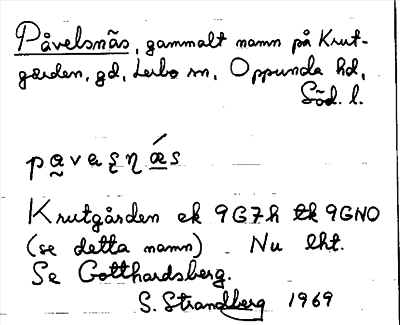 Påvelsnäs, gammalt namn på Krut-
gården, gd, Lerbo sn, Oppunda hd,
Söd. l.
Krutgården ek 9G7h 9GNO
(se detta namn) Nu lht.
Se Gotthardsberg.
S. Strandberg 1969